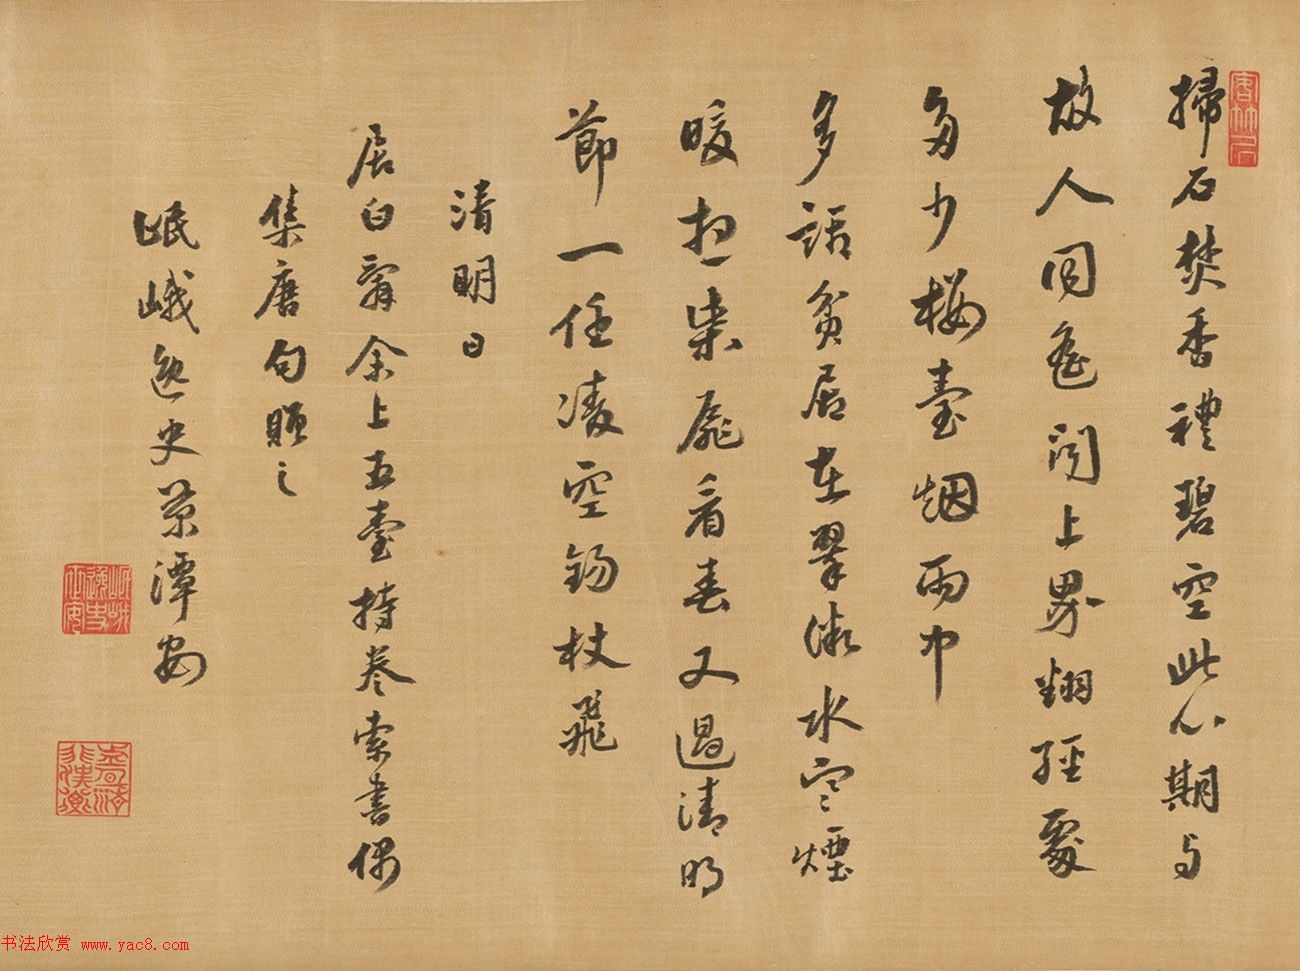 掃石焚香禮碧空此心期与
故人同遙聞上界翻經處
多少樓臺烟雨中
多話貧居在翠微水寒煙
暖想柴扉看春又過清明
節一任凌空錫杖飛
清明日
居白辭余上五臺持卷索書偶
集唐句贈之
岷峨逸史潭安
书法欣赏 www.yac8.com